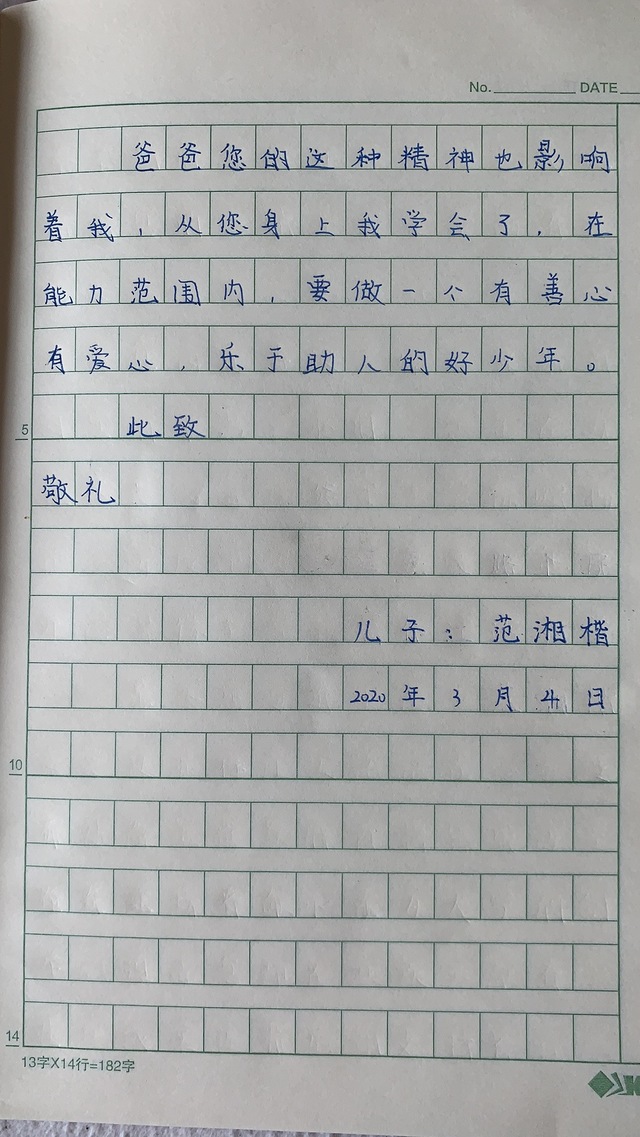 No. DATE
爸爸您的这种精神也影响
着我，从您身上我学会了，在
能力范围内，要做一个有善心
有爱心，乐于助人的好少年。
5
此致
敬礼
儿子：范湘楷
2020年3月4日
10
14
13字X14行=182字